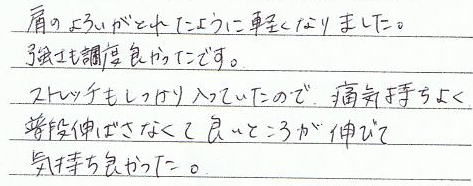 肩のよろいがとれたように軽くなりました。
強さも調度良かったです。
ストレッチもしっかり入っていたので、痛気持ちよく
普段伸ばさなくて良いところが伸びて
気持ち良かった。